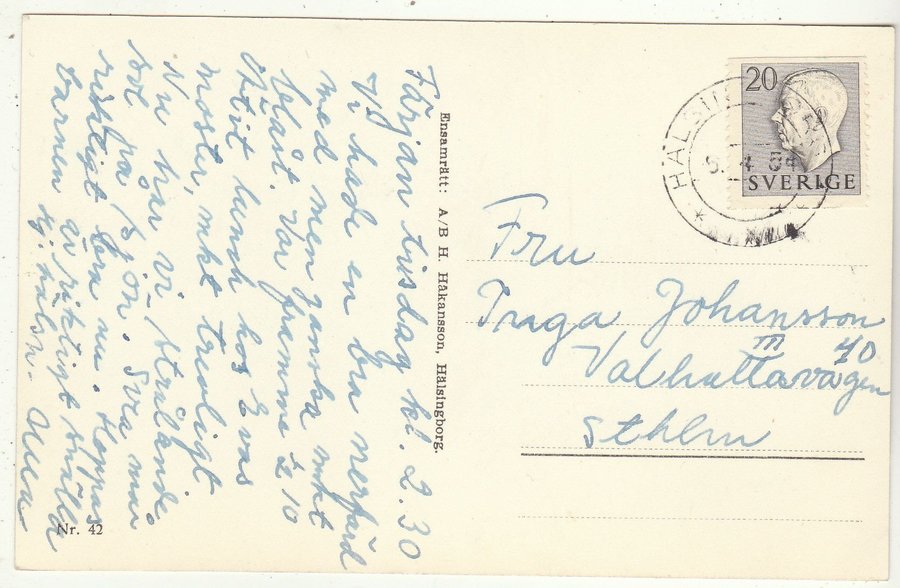 Färjan tisdag kl. 2.30
Vi hade en bra nerfärd
med men ganska mkt
blåst. Var framme ½ 10
Ätit lunch hos Evas
moster, mkt trevligt
Nu har vi strålande
sol på sjön. Svea mår
riktigt bra nu. Hoppas
barnen är riktigt snälla
Hj. hälsn.
Ensamrätt: A/B H. Håkansson, Hälsingborg.
Nr. 42
20
SVERIGE
HÄLSI
Fru
Inga Johansson
Valhallavägen 40
III
Sthlm